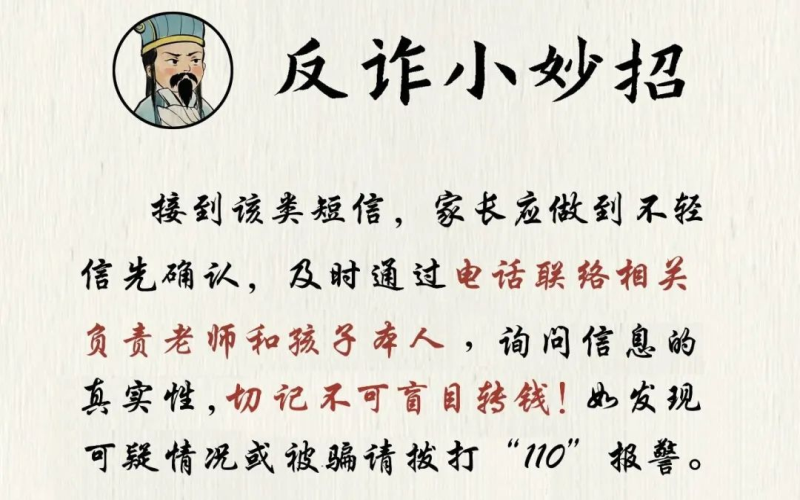 反诈小妙招
接到该类短信，家长应做到不轻
信先确认，及时通过电话联络相关
负责老师和孩子本人，询问信息的
真实性，切记不可盲目转钱！如发现
可疑情况或被骗请拨打“110”报警。